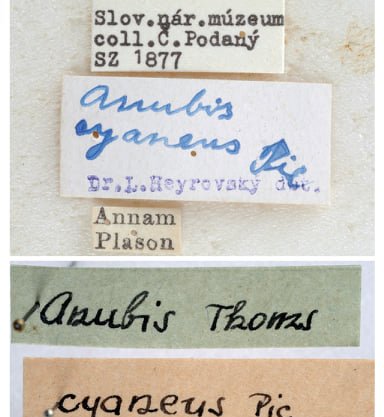 Slov.nár.múzeum
coll.Č.Podaný
SZ 1877
Anubis
cyaneus Pic
Dr.L.Heyrovský det.
Annam
Plason
Anubis Thoms
cyaneus Pic